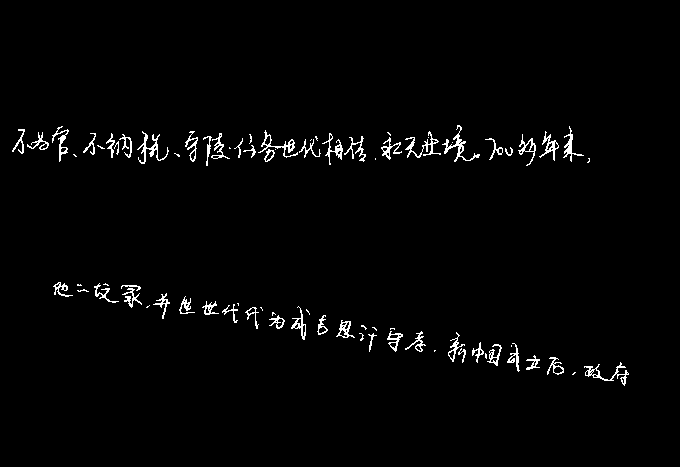 不为官、不纳税、守陵任务世代相传,永无止境。700多年来,
他二坟冢,并且世世代代为成吉思汗守孝.新中国成立后,政府